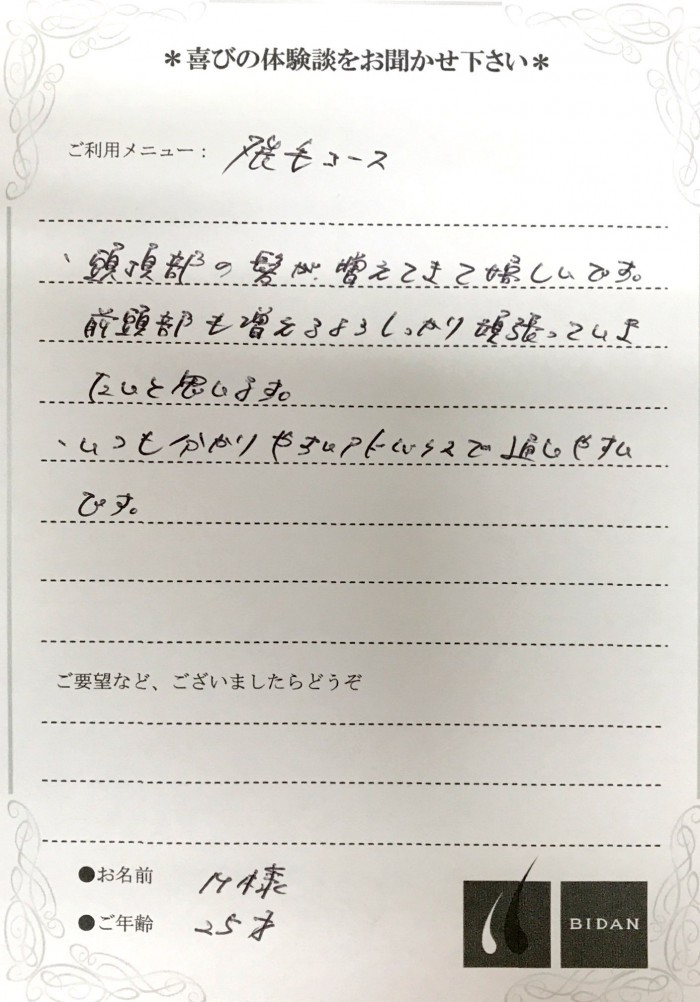 ＊喜びの体験談をお聞かせ下さい＊
ご利用メニュー： 発毛コース
、頭頂部の髪が増えてきて嬉しいです。
前頭部も増えるようしっかり頑張っていき
たいと思います。
、いつも分かりやすいアドバイスで通いやすい
です。
ご要望など、ございましたらどうぞ
●お名前 様
●ご年齢 25才
BIDAN